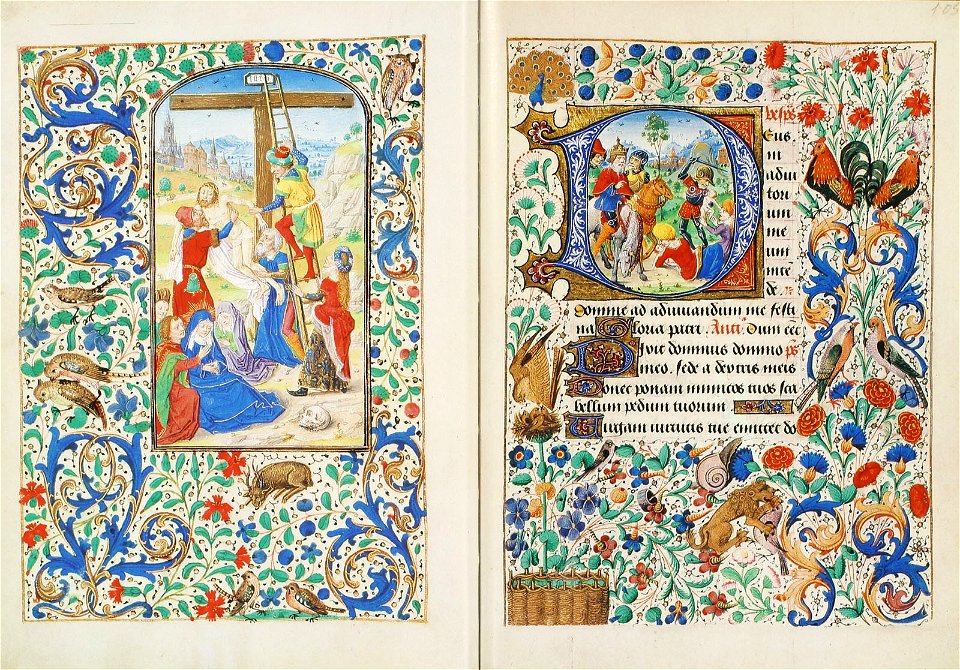 Deus
in
adiu
tori
um
me
um
inte
de.
Domine ad adiuuandum me festi
na Gloria patri. Anti. Dum eet
Dixit dominus domino ps
meo. sede a dextris meis
Donec ponam inimicos tuos sca
bellum pedum tuorum
Virgam uirtutis tue emittet do